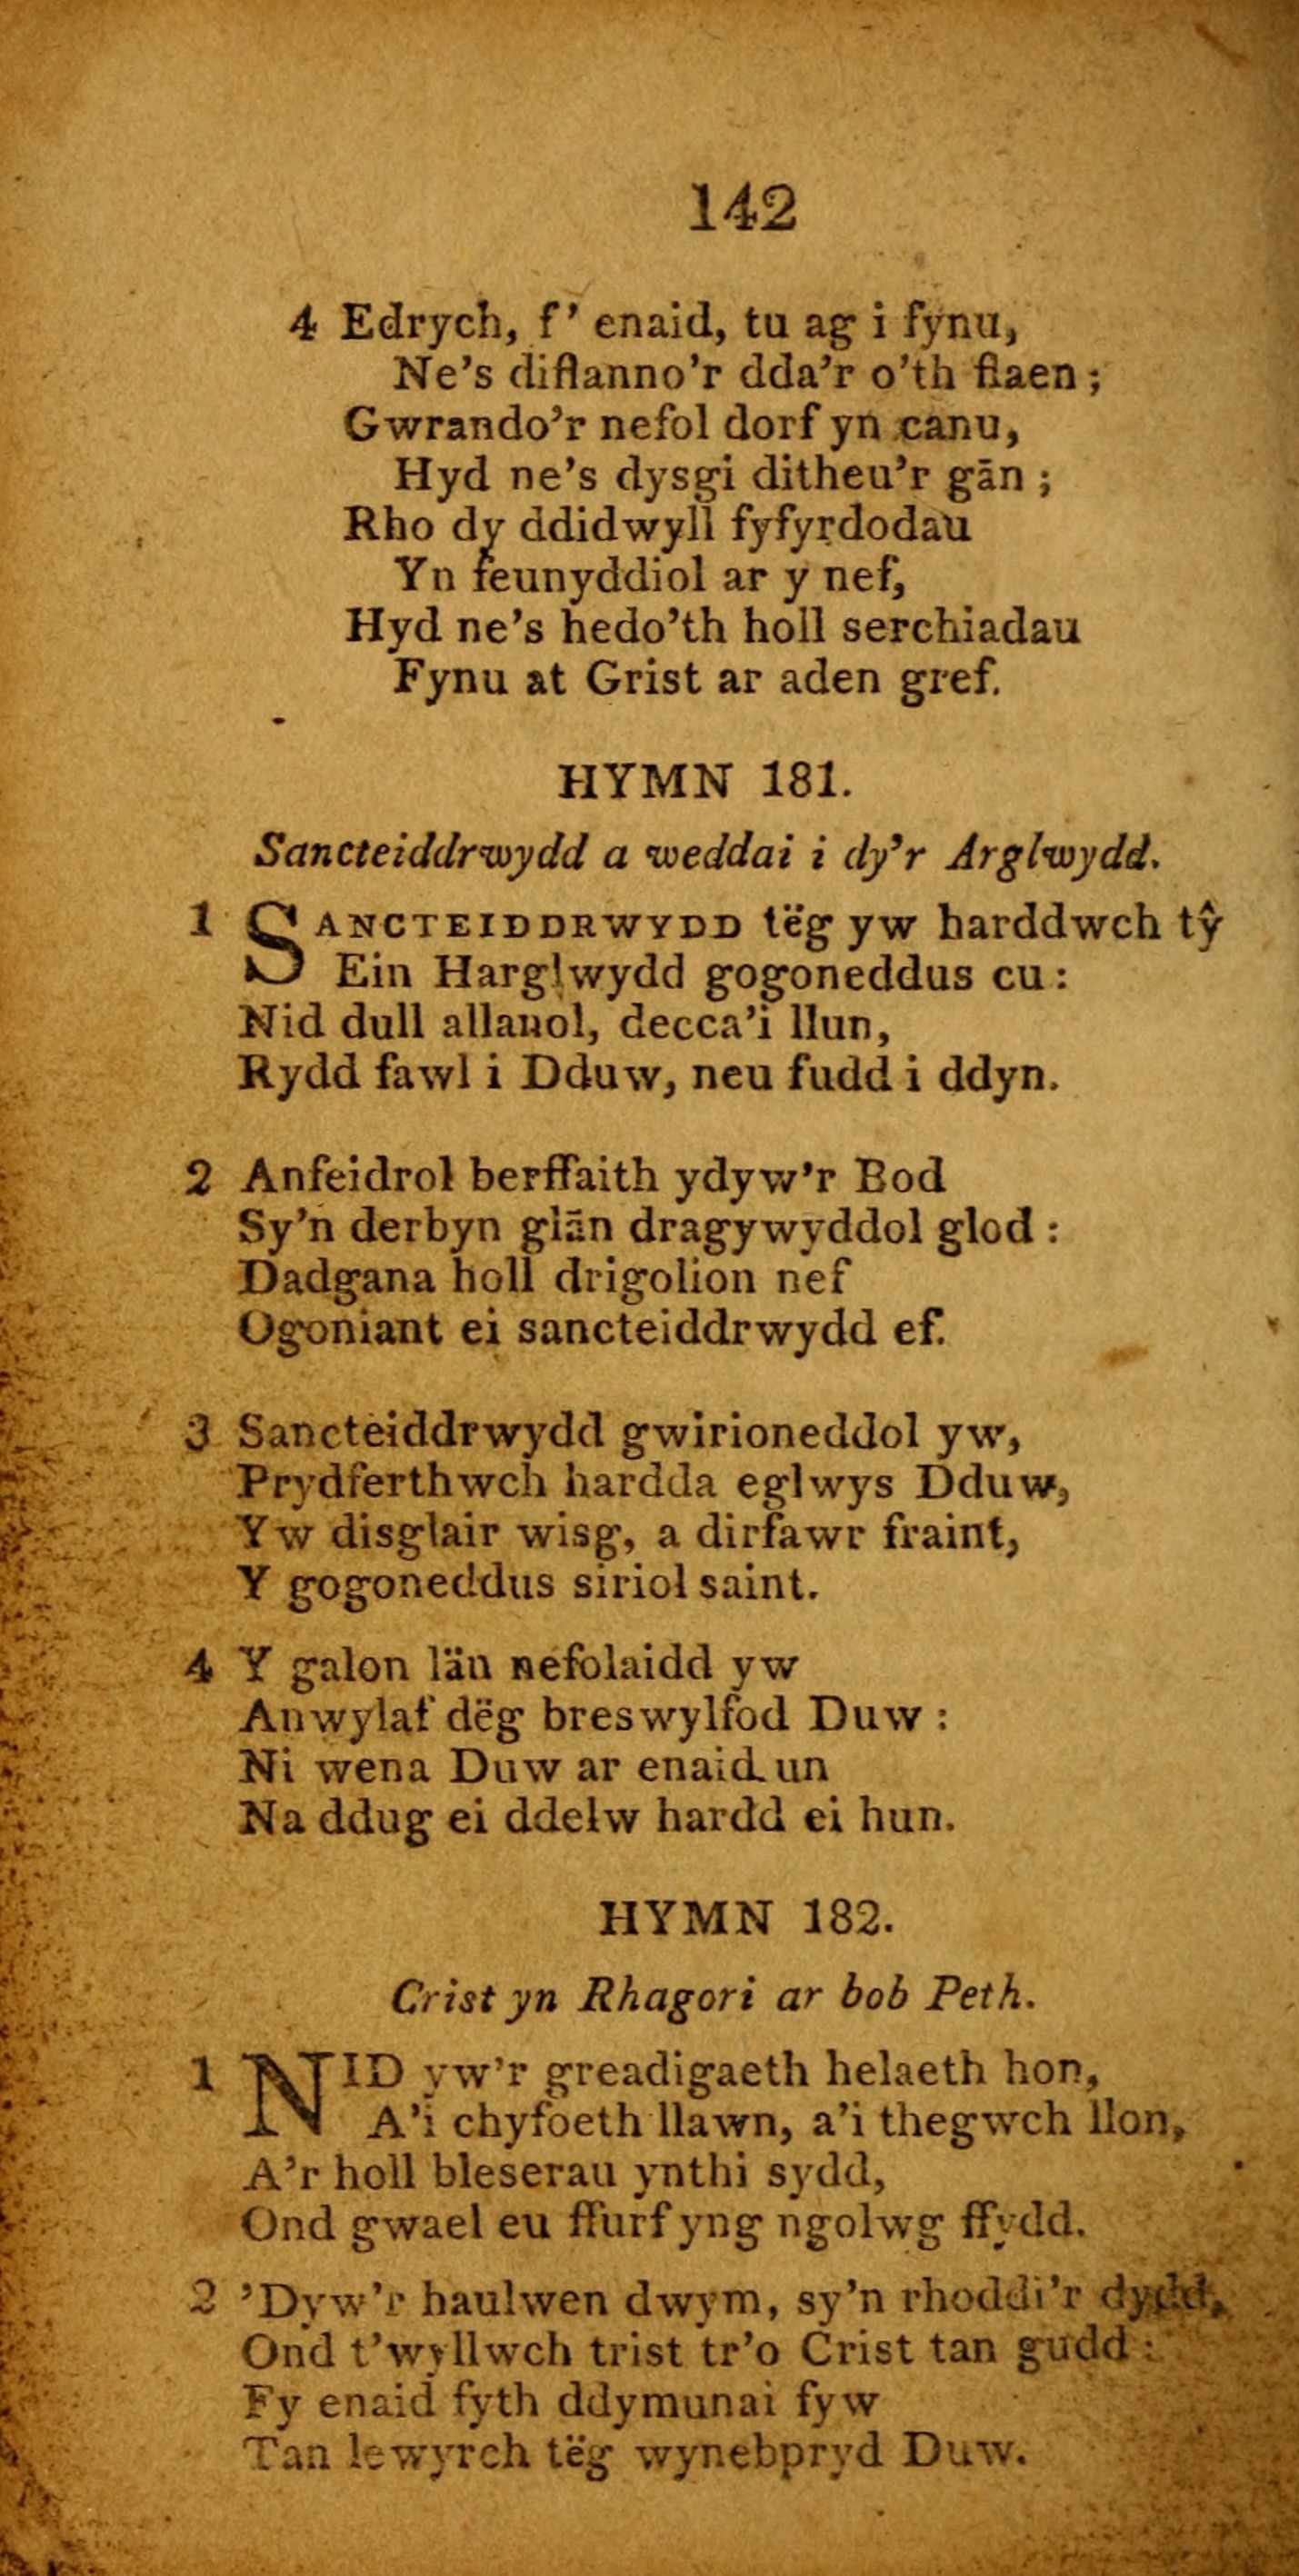 142
4 Edrych, f' enaid, tu ag i fynu,
Ne's diflanno'r dda'r o'th flaen;
Gwrando'r nefol dorf yn canu,
Hyd ne's dysgi ditheu'r gān;
Rho dy ddidwyll fyfyrdodau
Yn feunyddiol ar y nef,
Hyd ne's hedo'th holl serchiadau
Fynu at Grist ar aden gref.
HYMN 181.
Sancteiddrwydd a weddai i dy'r Arglwydd.
1 SANCTEIDDRWYDD tëg yw harddwch tŷ
Ein Harglwydd gogoneddus cu:
Nid dull allanol, decca'i llun,
Rydd fawl i Dduw, neu fudd i ddyn.
2 Anfeidrol berffaith ydyw'r Bod
Sy'n derbyn glān dragywyddol glod:
Dadgana holl drigolion nef
Ogoniant ei sancteiddrwydd ef.
3 Sancteiddrwydd gwirioneddol yw,
Prydferthwch hardda eglwys Dduw,
Yw disglair wisg, a dirfawr fraint,
Y gogoneddus siriol saint.
4 Y galon län nefolaidd yw
Anwylaf dëg breswylfod Duw:
Ni wena Duw ar enaid un
Na ddug ei ddelw hardd ei hun.
HYMN 182.
Crist yn Rhagori ar bob Peth.
1 NID yw'r greadigaeth helaeth hon,
A'i chyfoeth llawn, a'i thegwch llon,
A'r holl bleserau ynthi sydd,
Ond gwael eu ffurf yng ngolwg ffydd.
2 'Dyw'r haulwen dwym, sy'n rhoddi'r dydd,
Ond t'wyllwch trist tr'o Crist tan gudd:
Fy enaid fyth ddymunai fyw
Tan lewyrch tëg wynebpryd Duw.